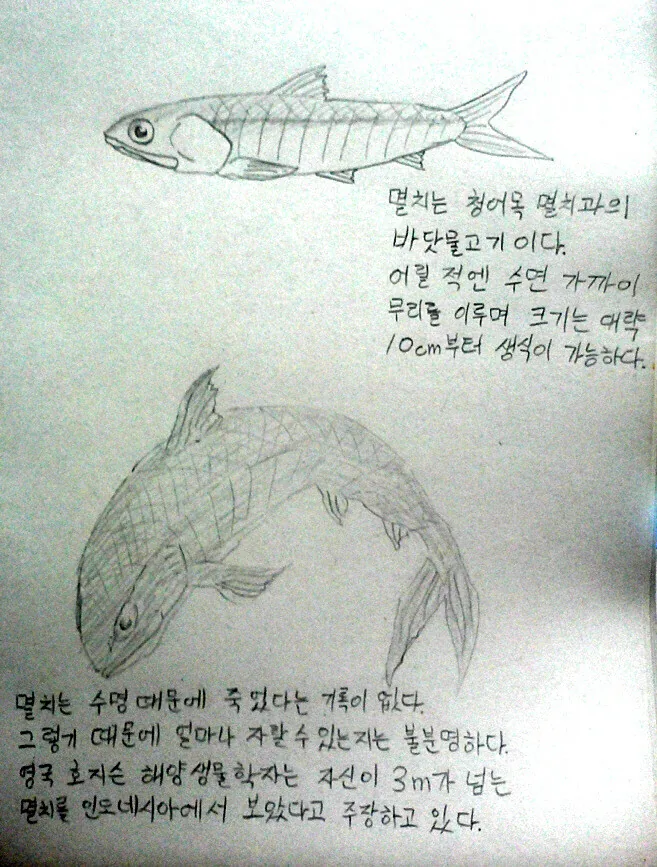 멸치는 청어목 멸치과의
바닷물고기이다.
어릴 적엔 수면 가까이
무리를 이루며 크기는 대략
10cm부터 생식이 가능하다.
멸치는 수명 때문에 죽었다는 기록이 없다.
그렇기 때문에 얼마나 자랄 수 있는지는 불분명하다.
영국 호지슨 해양생물학자는 자신이 3m가 넘는
멸치를 인도네시아에서 보았다고 주장하고 있다.